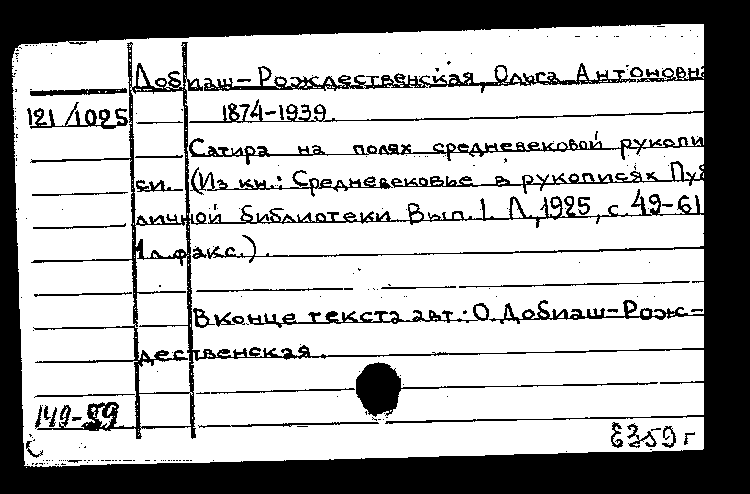 Добиаш-Рождественская, Ольга Антоновна
121/1025
1874-1939.
Сатира на полях средневековой рукопи
си. (Из кн.: Средневековье в рукописях Пуб
личной библиотеки Вып. 1. Л., 1925, с. 49-61
1 л. факс.).
В конце текста авт.: О. Добиаш-Рож-
дественская.
149-59